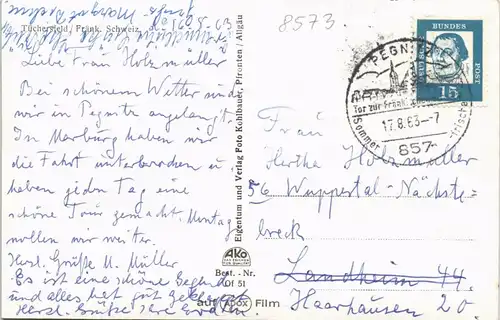 8573
Tüchersfeld / Fränk. Schweiz
Liebe Frau Holzmüller
Bei schönem Wetter sind
wir in Pegnitz angelangt.
In Marburg haben wir
die Fahrt unterbrochen u
haben jeden Tag eine
schöne Tour gemacht. Montag
wollen wir weiter.
Herzl. Grüße M. Müller
Es ist eine schöne Gegend
und alles hat gut geklappt
Herzl. Grüße Ihre
Eigentum und Verlag Foto Kohlbauer, Pfronten / Allgäu
AKO
Best.-Nr.
Df 51
auf (Apox) Film
DEUTSCHE
BUNDES
POST
15
PEGNITZ
Tor zur Fränk.
17.8.63-7
Sommerfrische
857
Frau
Hertha Holzmüller
56 Wuppertal-Nächste-
breck
Landheim 44.
Haarhausen 20